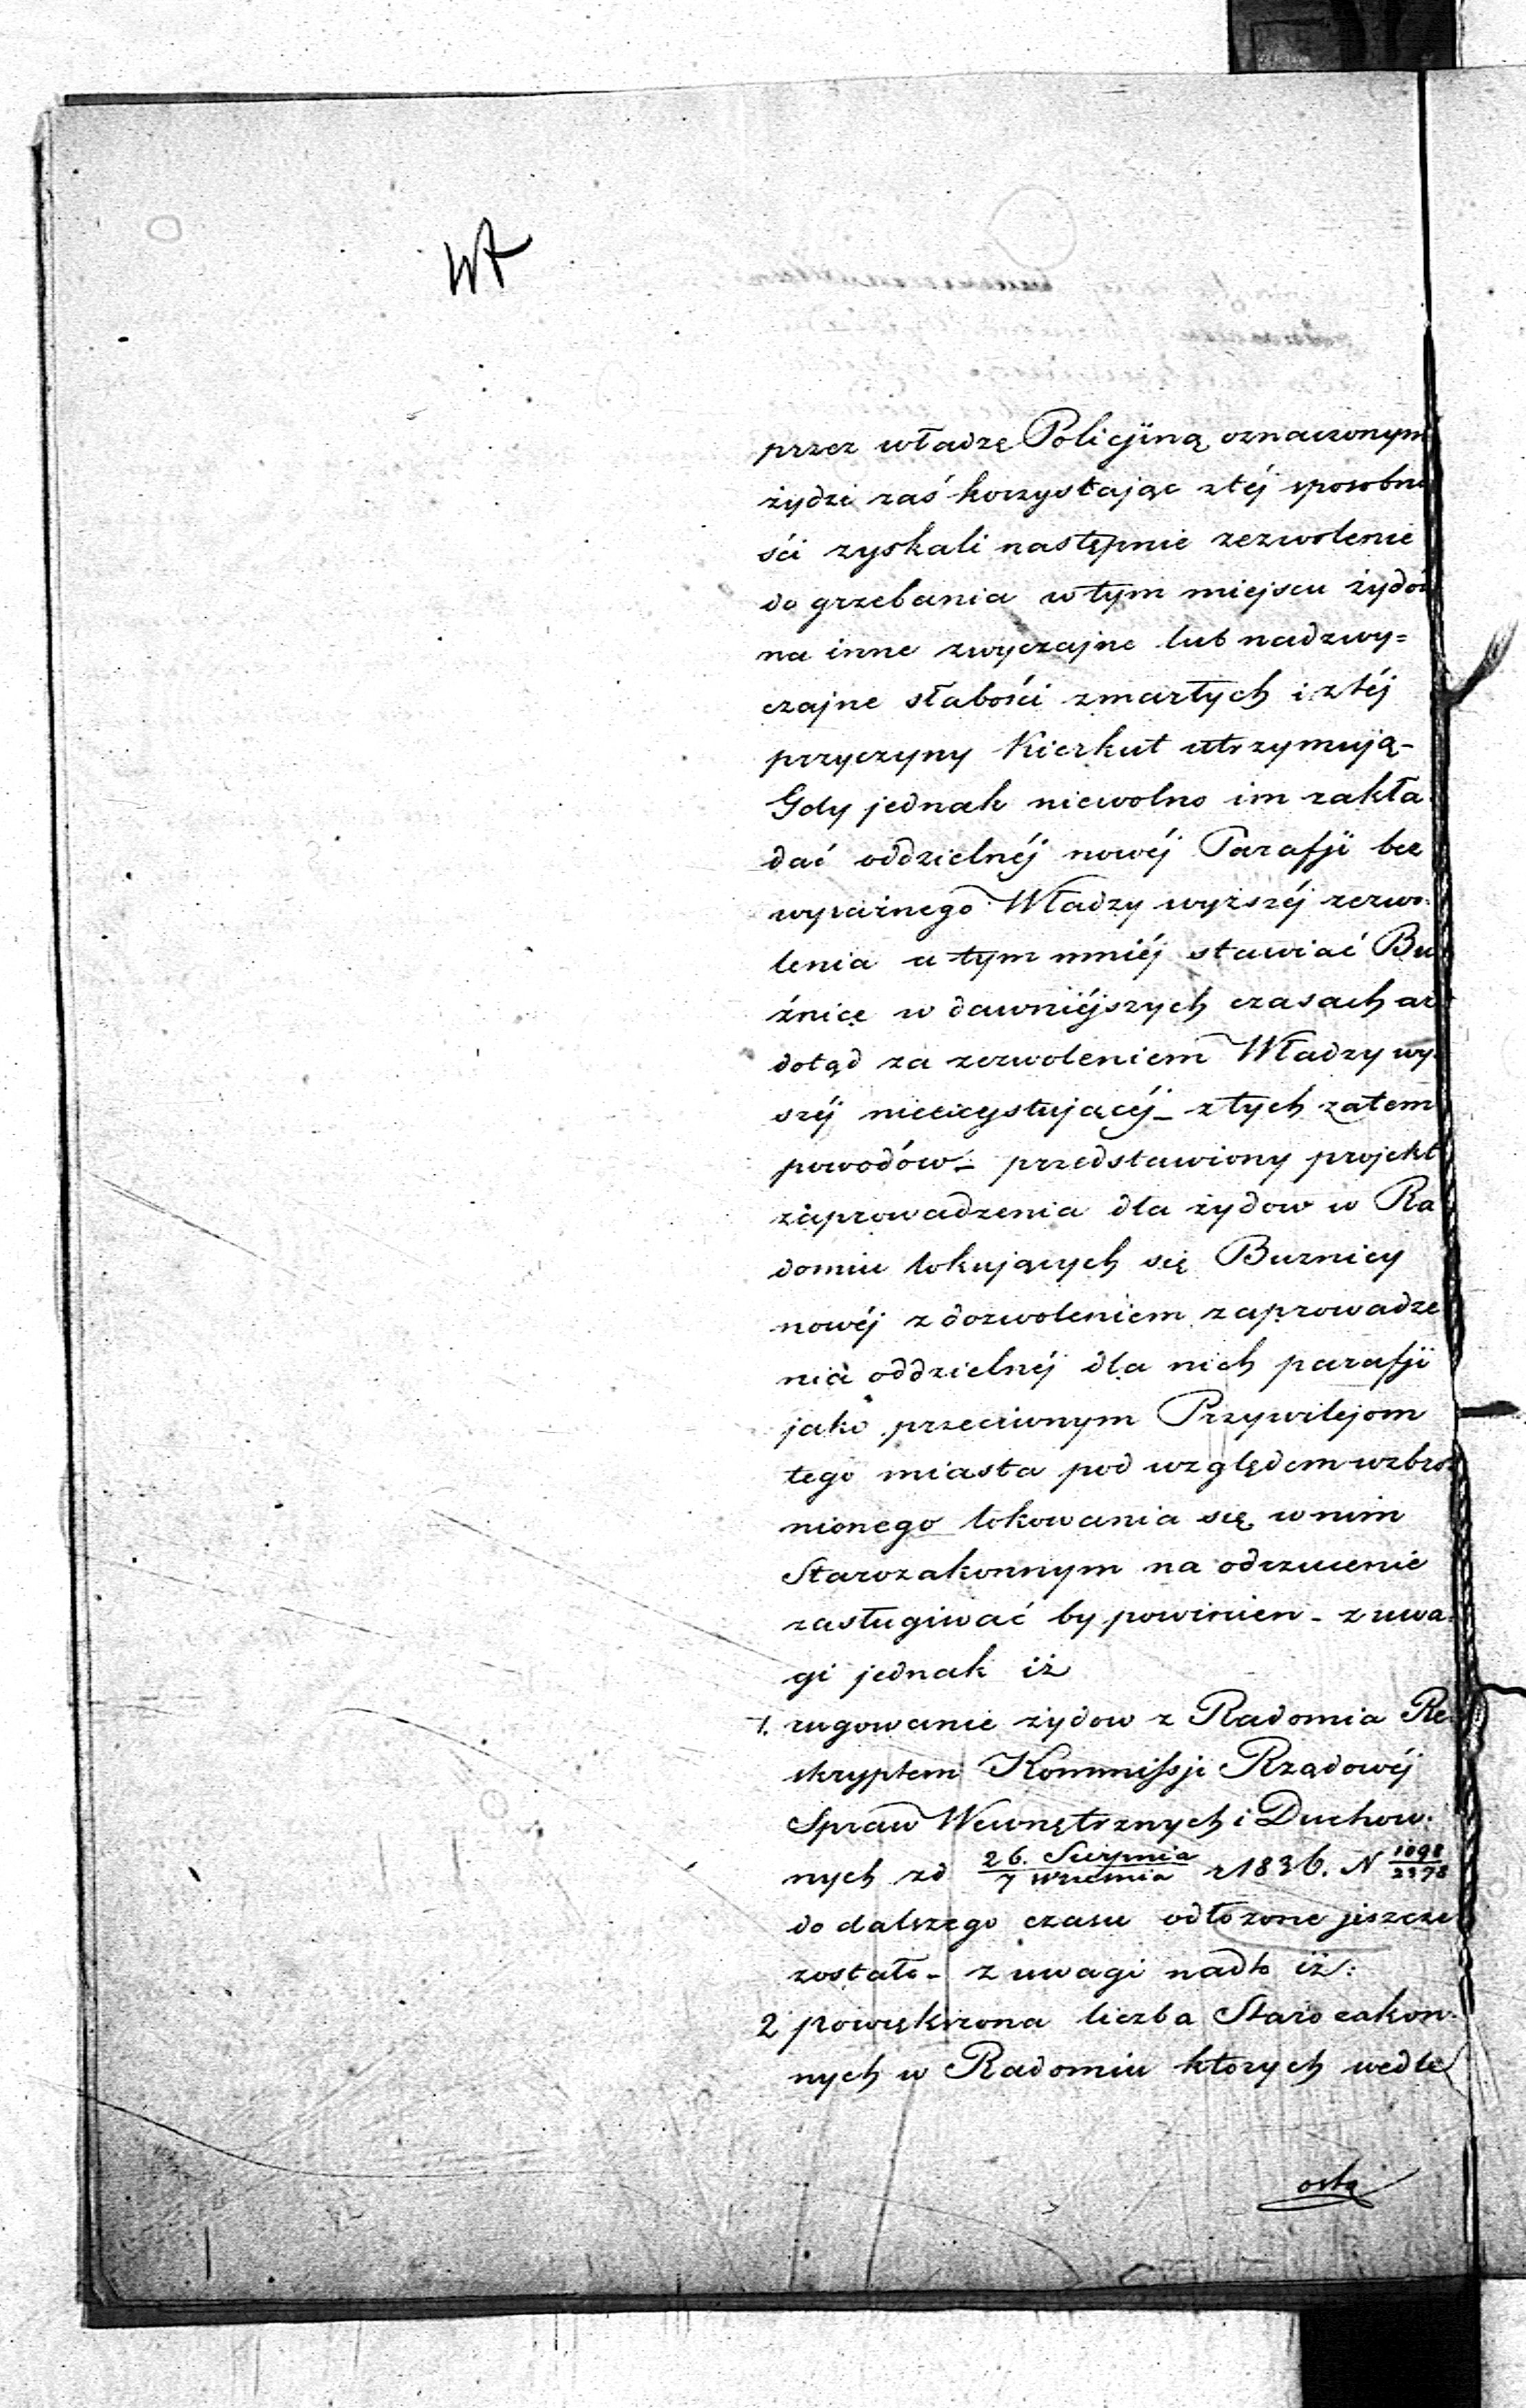 przez władzę Policyjną oznaczonym
żydzi zaś korzystając z téj sposobno
ści zyskali następnie zezwolenie
do grzebania w tym miejscu żydów
na inne zwyczajne lub nadzwy=
czajne słabości zmarłych i z téj
przyczyny Kierkut utrzymują -
Gdy jednak niewolno im zakła
dać oddzielnéj nowéj Parafji bez
wyraźnego Władzy wyższéj zezwo-
lenia a tym mniéj stawiać Bu
źnicę w dawniéjszych czasach aż
dotąd za zezwoleniem Władzy wy
széj nieexystującéj - z tych zatem
powodów - przedstawiony projekt
zaprowadzenia dla żydow w Ra
domiu lokujących się Buznicy
nowéj z dozwoleniem zaprowadze
nia oddzielnéj dla nich parafji
jako przeciwnym Przywilejom
tego miasta pod względem wzbro
nionego lokowania się w nim
Starozakonnym na odrzucenie
zasługiwać by powinien - z uwa-
gi jednak iż
1. rugowanie żydow z Radomia Re-
skryptem Kommissji Rządowéj
Spraw Wewnętrznych i Duchow-
nych zd 26. Sierpnia / 7 Września r 1836. N 1098/2378
do dalszego czasu odłożone jeszcze
zostało - z uwagi nadto iż:
2 powiększona liczba Starozakon-
nych w Radomiu których wedle